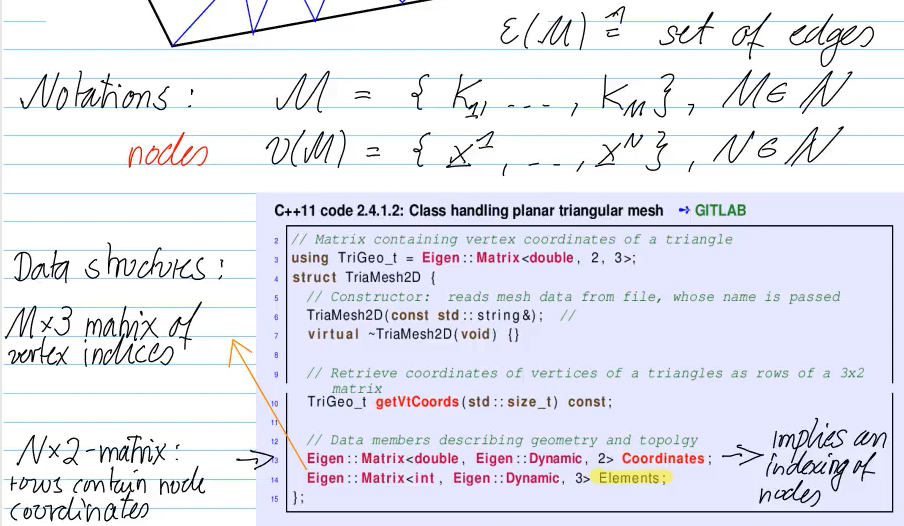 ℰ(M) ≙ set of edges
Notations : M = { K₁, ..., K_M }, M ∈ ℕ
nodes 𝒱(M) = { x¹, ..., x^N }, N ∈ ℕ
C++11 code 2.4.1.2: Class handling planar triangular mesh ➺ GITLAB
2 // Matrix containing vertex coordinates of a triangle
3 using TriGeo_t = Eigen::Matrix<double, 2, 3>;
4 struct TriaMesh2D {
5 // Constructor: reads mesh data from file, whose name is passed
6 TriaMesh2D(const std::string&); //
7 virtual ~TriaMesh2D(void) {}
8
9 // Retrieve coordinates of vertices of a triangles as rows of a 3x2
matrix
10 TriGeo_t getVtCoords(std::size_t) const;
11
12 // Data members describing geometry and topolgy
13 Eigen::Matrix<double, Eigen::Dynamic, 2> Coordinates;
14 Eigen::Matrix<int, Eigen::Dynamic, 3> Elements;
15 };
Data structures :
M×3 matrix of
vertex indices
N×2-matrix :
rows contain node
coordinates
implies an
indexing of
nodes